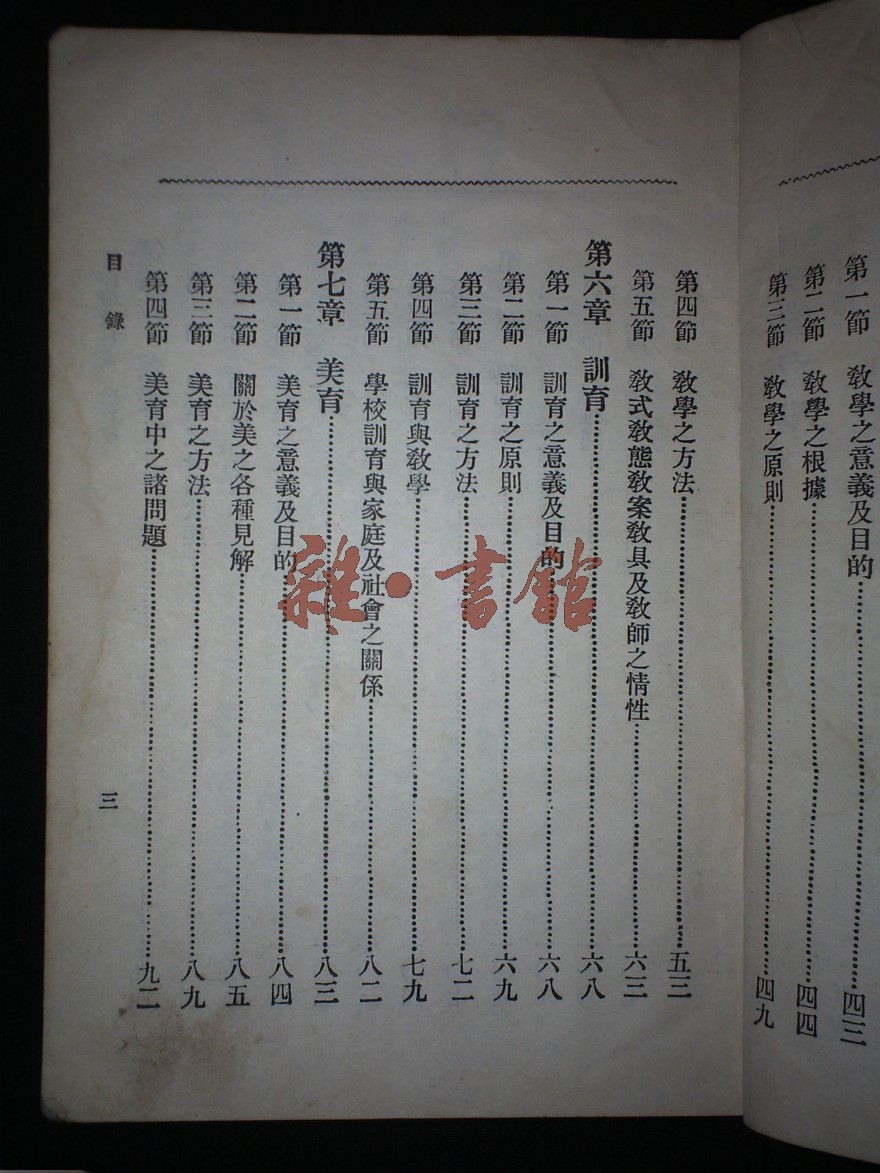 第一節　教學之意義及目的……四三
第二節　教學之根據……四四
第三節　教學之原則……四九
第四節　教學之方法……五三
第五節　教式教態教案教具及教師之情性……六三
第六章　訓育……六八
第一節　訓育之意義及目的……六八
第二節　訓育之原則……六九
第三節　訓育之方法……七二
第四節　訓育與教學……七九
第五節　學校訓育與家庭及社會之關係……八二
第七章　美育……八三
第一節　美育之意義及目的……八四
第二節　關於美之各種見解……八五
第三節　美育之方法……八九
第四節　美育中之諸問題……九二
目錄
三
雜·書館